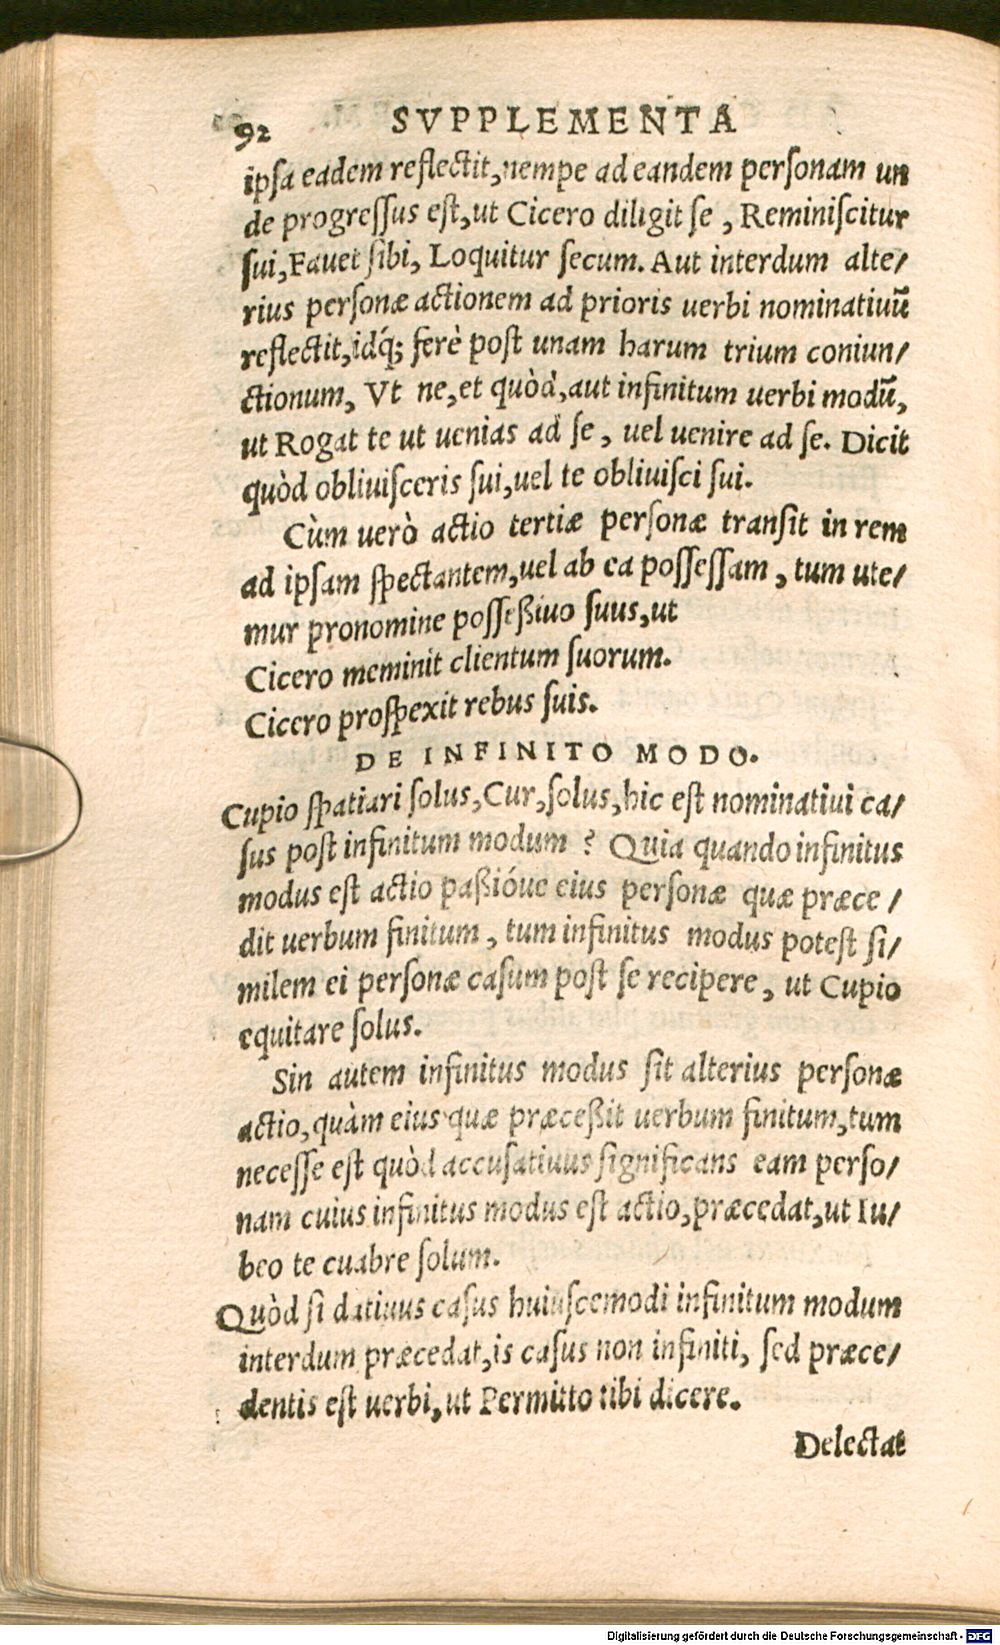 92 SVPPLEMENTA
ipsa eadem reflectit,nempe ad eandem personam un
de progressus est,ut Cicero diligit se , Reminiscitur
sui,Fauet sibi, Loquitur secum. Aut interdum alte/
rius personæ actionem ad prioris uerbi nominatiuū
reflectit,idq́; ferè post unam harum trium coniun/
ctionum, Vt ne,et quòd,aut infinitum uerbi modū,
ut Rogat te ut uenias ad se , uel uenire ad se. Dicit
quòd obliuisceris sui,uel te obliuisci sui.
Cùm uerò actio tertiæ personæ transit in rem
ad ipsam spectantem,uel ab ea possessam , tum ute/
mur pronomine posseßiuo suus,ut
Cicero meminit clientum suorum.
Cicero prospexit rebus suis.
DE INFINITO MODO.
Cupio spatiari solus,Cur,solus,hic est nominatiui ca/
sus post infinitum modum ? Quia quando infinitus
modus est actio paßióue eius personæ quæ præce /
dit uerbum finitum , tum infinitus modus potest si/
milem ei personæ casum post se recipere, ut Cupio
equitare solus.
Sin autem infinitus modus sit alterius personæ
actio,quàm eius quæ præceßit uerbum finitum,tum
necesse est quòd accusatiuus significans eam perso/
nam cuius infinitus modus est actio,præcedat,ut Iu/
beo te cuabre solum.
Quòd si datiuus casus huiuscemodi infinitum modum
interdum præcedat,is casus non infiniti, sed præce/
dentis est uerbi,ut Permitto tibi dicere.
Delectat
Digitalisierung gefördert durch die Deutsche Forschungsgemeinschaft - DFG